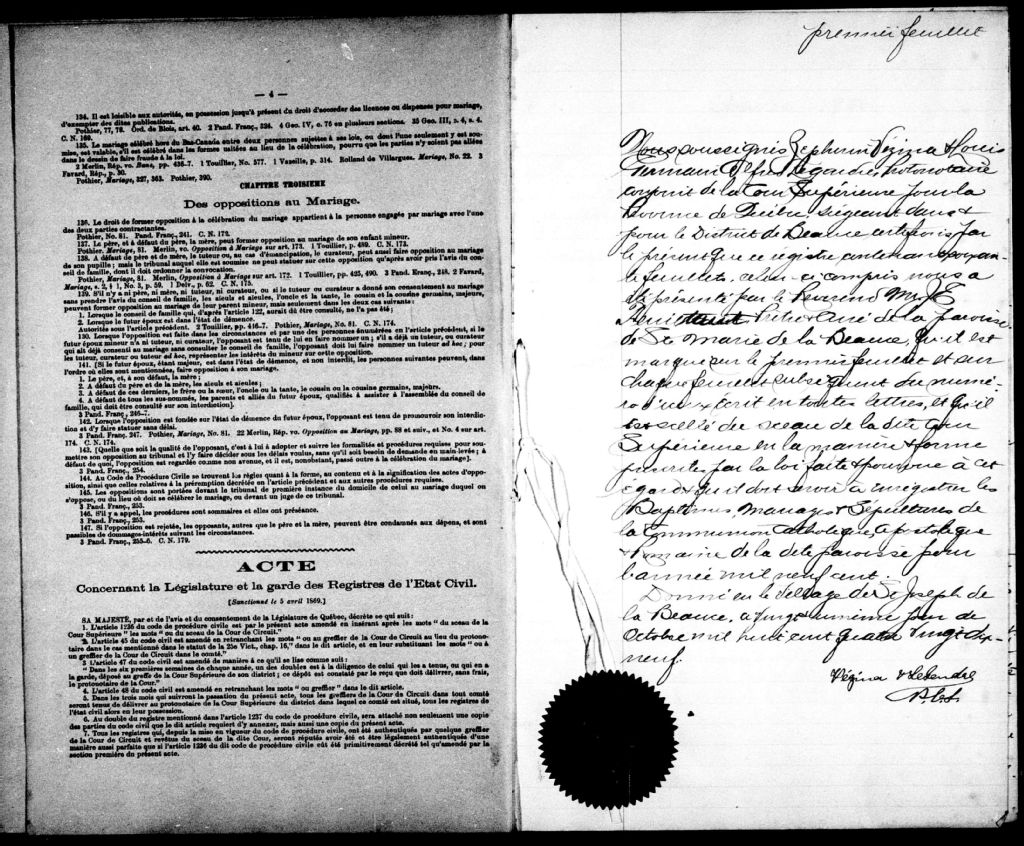 — 4 —
134. Il est loisible aux autorités, en possession jusqu'à présent du droit d'accorder des licences ou dispenses pour mariage,
d'exempter des dites publications.
Pothier, 77, 78. Ord. de Blois, art. 40. 2 Pand. Franç., 324. 4 Geo. IV, c. 75 en plusieurs sections. 35 Geo. III, s. 4, s. 4.
C. N. 169.
135. Le mariage célébré hors du Bas-Canada entre deux personnes sujettes à ses lois, ou dont l'une seulement y est sou-
mise, est valable, s'il est célébré dans les formes usitées au lieu de la célébration, pourvu que les parties n'y soient pas allées
dans le dessin de faire fraude à la loi.
2 Merlin, Rép. vo. Bans, pp. 435-7. 1 Touiller, No. 577. 1 Vazeille, p. 314. Rolland de Villargues. Mariage, No. 22. 3
Favard, Rép., p. 30.
Pothier, Mariage, 327, 363. Pothier, 390.
CHAPITRE TROISIEME
Des oppositions au Mariage.
136. Le droit de former opposition à la célébration du mariage appartient à la personne engagée par mariage avec l'une
des deux parties contractantes.
Pothier, No. 81. Pand. Franç., 241. C. N. 172.
137. Le père, et à défaut du père, la mère, peut former opposition au mariage de son enfant mineur.
Pothier, Mariage, 81. Merlin, vo. Opposition à Mariage sur art. 173. 1 Touiller, p. 489. C. N. 173.
138. A défaut de père et de mère, le tuteur ou, au cas d'émancipation, le curateur, peut aussi faire opposition au mariage
de son pupille; mais le tribunal auquel elle est soumise ne peut statuer sur cette opposition qu'après avoir pris l'avis du con-
seil de famille, dont il doit ordonner la convocation.
Pothier, Mariage, 81. Merlin, Opposition à Mariage sur art. 172. 1 Touillier, pp. 425, 490. 3 Pand. Franç., 248. 2 Favard,
Mariage, s. 2, § 1, No. 3, p. 59. 1 Delv., p. 62. C. N. 175.
139. S'il n'y a ni père, ni mère, ni tuteur, ni curateur, ou si le tuteur ou curateur a donné son consentement au mariage
sans prendre l'avis du conseil de famille, les aïeuls et aïeules, l'oncle et la tante, le cousin et la cousine germains, majeurs,
peuvent former opposition au mariage de leur parent mineur, mais seulement dans les deux cas suivants:
1. Lorsque le conseil de famille qui, d'après l'article 122, aurait dû être consulté, ne l'a pas été;
2. Lorsque le futur époux est dans l'état de démence.
Autorités sous l'article précédent. 2 Touillier, pp. 416-7. Pothier, Mariage, No. 81. C. N. 174.
130. Lorsque l'opposition est faite dans les circonstances et par une des personnes énumérées en l'article précédent, si le
futur époux mineur n'a ni tuteur, ni curateur, l'opposant est tenu de lui en faire nommer un; s'il a déjà un tuteur ou curateur
qui ait déjà consenti au mariage sans consulter le conseil de famille, l'opposant doit lui faire nommer un tuteur ad hoc; pour
les tuteur, curateur ou tuteur ad hoc, représenter les intérêts du mineur sur cette opposition.
141. [Si le futur époux, étant majeur, est dans l'état de démence, et non interdit, les personnes suivantes peuvent, dans
l'ordre où elles sont mentionnées, faire opposition à son mariage.
1. Le père, et, à son défaut, la mère;
2. A défaut du père et de la mère, les aïeuls et aïeules;
3. A défaut de ces derniers, le frère ou la sœur, l'oncle ou la tante, le cousin ou la cousine germains, majeurs.
4. A défaut de tous les sus-nommés, les parents et alliés du futur époux, qualifiés à assister à l'assemblée du conseil de
famille, qui doit être consulté sur son interdiction].
3 Pand. Franç., 246-7.
142. Lorsque l'opposition est fondée sur l'état de démence du futur époux, l'opposant est tenu de promouvoir son interdic-
tion et d'y faire statuer sans délai.
3 Pand. Franç. 247. Pothier, Mariage, No. 81. 22 Merlin, Rép. vo. Opposition au Mariage, pp. 88 et suiv., et No. 4 sur art.
174. C. N. 174.
143. [Quelle que soit la qualité de l'opposant, c'est à lui à adopter et suivre les formalités et procédures requises pour sou-
mettre son opposition au tribunal et l'y faire décider sous les délais voulus, sans qu'il soit besoin de demande en main-levée; à
défaut de quoi, l'opposition est regardée comme non avenue, et il est, nonobstant, passé outre à la célébration du mariage].
3 Pand. Franç., 254.
144. Au Code de Procédure Civile se trouvent les règles quant à la forme, au contenu et à la signification des actes d'oppo-
sition, ainsi que celles relatives à la péremption décrétée en l'article précédent et aux autres procédures requises.
145. Les oppositions sont portées devant le tribunal de première instance du domicile de celui au mariage duquel on
s'oppose, ou du lieu où doit se célébrer le mariage, ou devant un juge de ce tribunal.
3 Pand. Franç., 253.
146. S'il y a appel, les procédures sont sommaires et elles ont préséance.
3 Pand. Franç., 253.
147. Si l'opposition est rejetée, les opposants, autres que le père et la mère, peuvent être condamnés aux dépens, et sont
passibles de dommages-intérêts suivant les circonstances.
3 Pand. Franç., 255-6. C. N. 179.
ACTE
Concernant la Législature et la garde des Registres de l'Etat Civil.
[Sanctionné le 5 avril 1869.]
SA MAJESTÉ, par et de l'avis et du consentement de la Législature de Québec, décrète ce qui suit:
1. L'article 1236 du code de procédure civile est par le présent acte amendé en insérant après les mots "du sceau de la
Cour Supérieure" les mots "ou du sceau de la Cour de Circuit."
2. L'article 45 du code civil est amendé en retranchant les mots "ou au greffier de la Cour de Circuit au lieu du protono-
taire dans le cas mentionné dans le statut de la 25e Vict., chap. 16," dans le dit article, et en leur substituant les mots "ou à
un greffier de la Cour de Circuit dans le comté."
3. L'article 47 du code civil est amendé de manière à ce qu'il se lise comme suit:
"Dans les six premières semaines de chaque année, un des doubles est à la diligence de celui qui les a tenus, ou qui en a
la garde, déposé au greffe de la Cour Supérieure de son district; ce dépôt est constaté par le reçu que doit délivrer, sans frais,
le protonotaire de la Cour."
4. L'article 48 du code civil est amendé en retranchant les mots "ou greffier" dans le dit article.
5. Dans les trois mois qui suivront la passation du présent acte, tous les greffiers de la Cour de Circuit dans tout comté
seront tenus de délivrer au protonotaire de la Cour Supérieure du district dans lequel ce comté est situé, tous les registres de
l'état civil alors en leur possession.
6. Au double du registre mentionné dans l'article 1237 du code de procédure civile, sera attaché non seulement une copie
des parties du code civil que le dit article requiert d'y annexer, mais aussi une copie du présent acte.
7. Tous les registres qui, depuis la mise en vigueur du code de procédure civile, ont été authentiqués par quelque greffier
de la Cour de Circuit et revêtus du sceau de la dite Cour, seront réputés avoir été et être légalement authentiqués d'une
manière aussi parfaite que si l'article 1236 du dit code de procédure civile eût été primitivement décrété tel qu'amendé par la
section première du présent acte.
premier feuillet
Nous soussignés Zephirin Vézina & Louis
Alfred Legendre, protonotaire
conjoint de la Cour Supérieure pour la
Province de Québec, siégeant dans &
pour le District de Beauce certifions par
le présent que ce registre contenant
feuillets, celui-ci compris nous a
été présenté par le Révérend Mr J E
Curé de la paroisse
de Ste Marie de la Beauce, qu'il est
marqué sur le premier feuillet et sur
chaque feuillet subséquent du numé-
ro d'un écrit en toutes lettres, et qu'il
est scellé du sceau de la dite Cour
Supérieure en la manière & forme
prescrites par la loi faite & pourvue à cet
égard & qu'il doit servir à enregistrer les
Baptêmes, Mariages & Sépultures de
la Communion Catholique, Apostolique
& Romaine de la dite paroisse pour
l'année mil neuf cent.
Donné en le village de St Joseph de
la Beauce, ce vingt unième jour de
Octobre mil huit cent quatre vingt dix
neuf.
Vézina & Legendre
P. C. S.